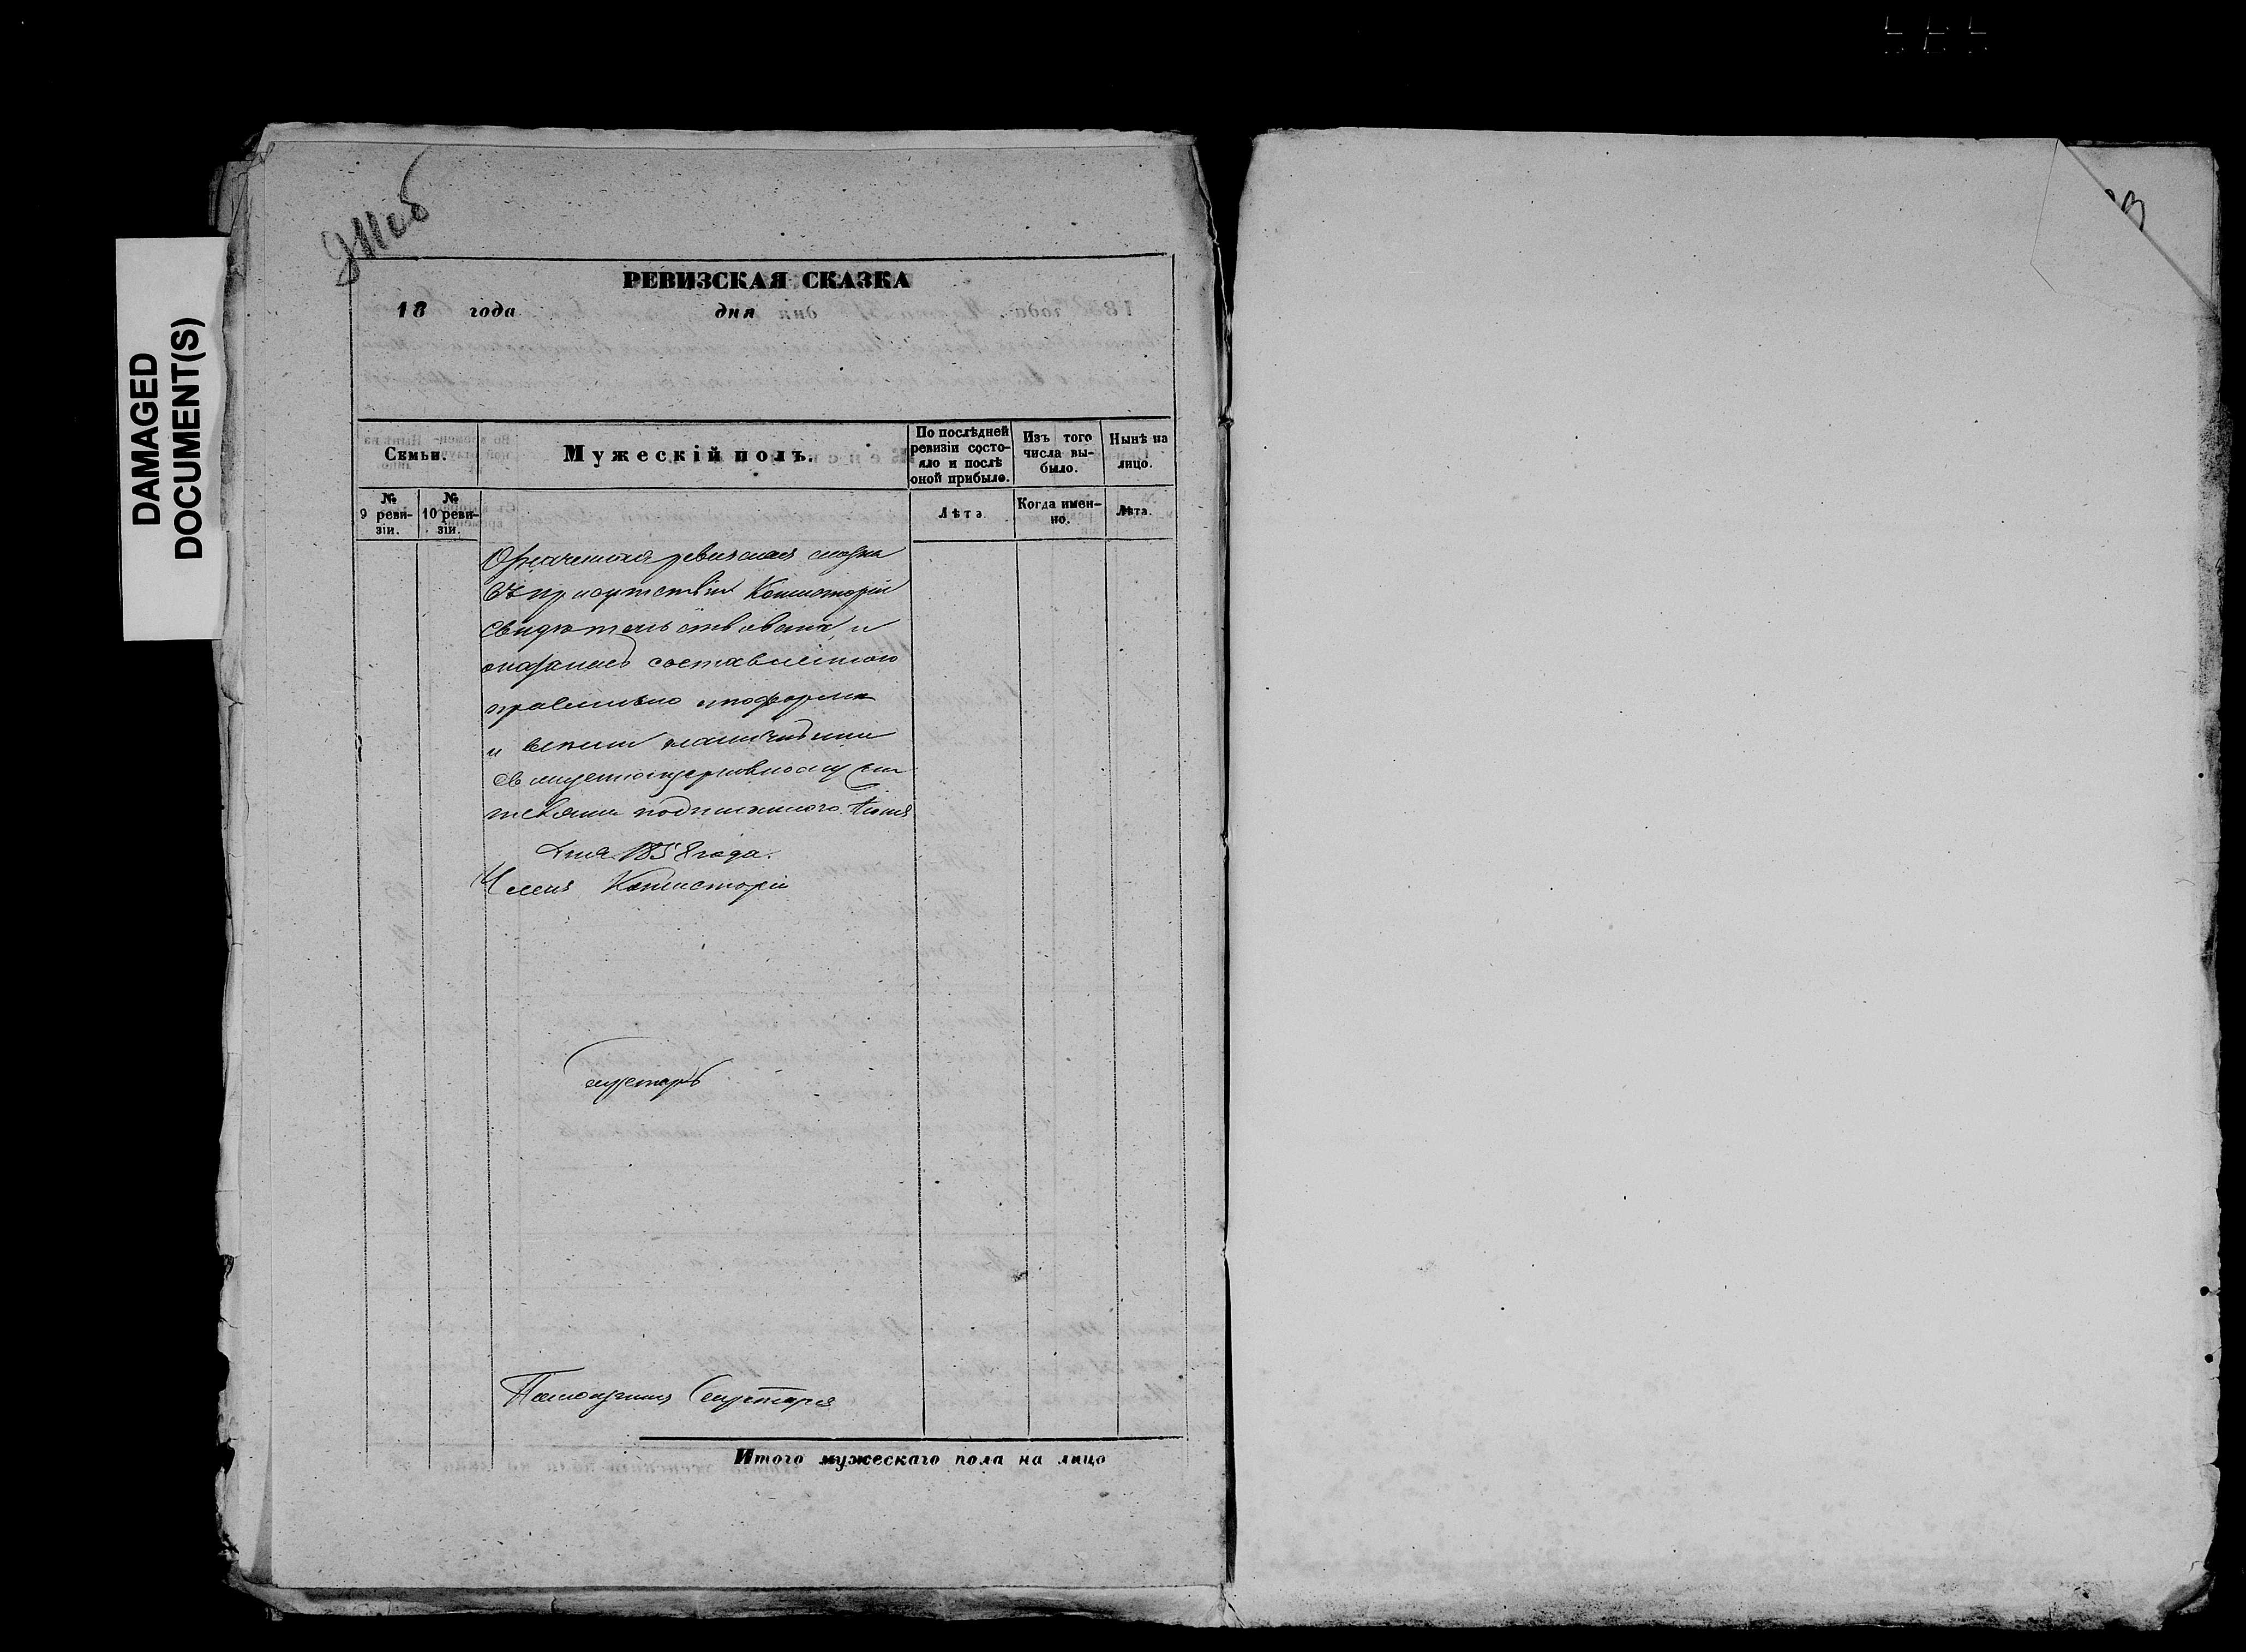 DAMAGED
DOCUMENT(S)
РЕВИЗСКАЯ СКАЗКА
18 года дня
Семьи.
Мужескій полъ.
По послѣдней
ревизіи состо-
яло и послѣ
оной прибыло.
Изъ того
числа вы-
было.
Нынѣ на
лицо.
№
9 реви-
зіи.
№
10 реви-
зіи.
Лѣта
Когда имен-
но.
Лѣта.
Означенная ревизская сказка
Въ присутствіи Консисторіи
свидѣтельствована и
оказалась составленною
правильно
и
подписанною. Іюня
дня 1858 года.
Членъ Консисторіи
Секретарь
Помощникъ Секретаря
Итого мужескаго пола на лицо